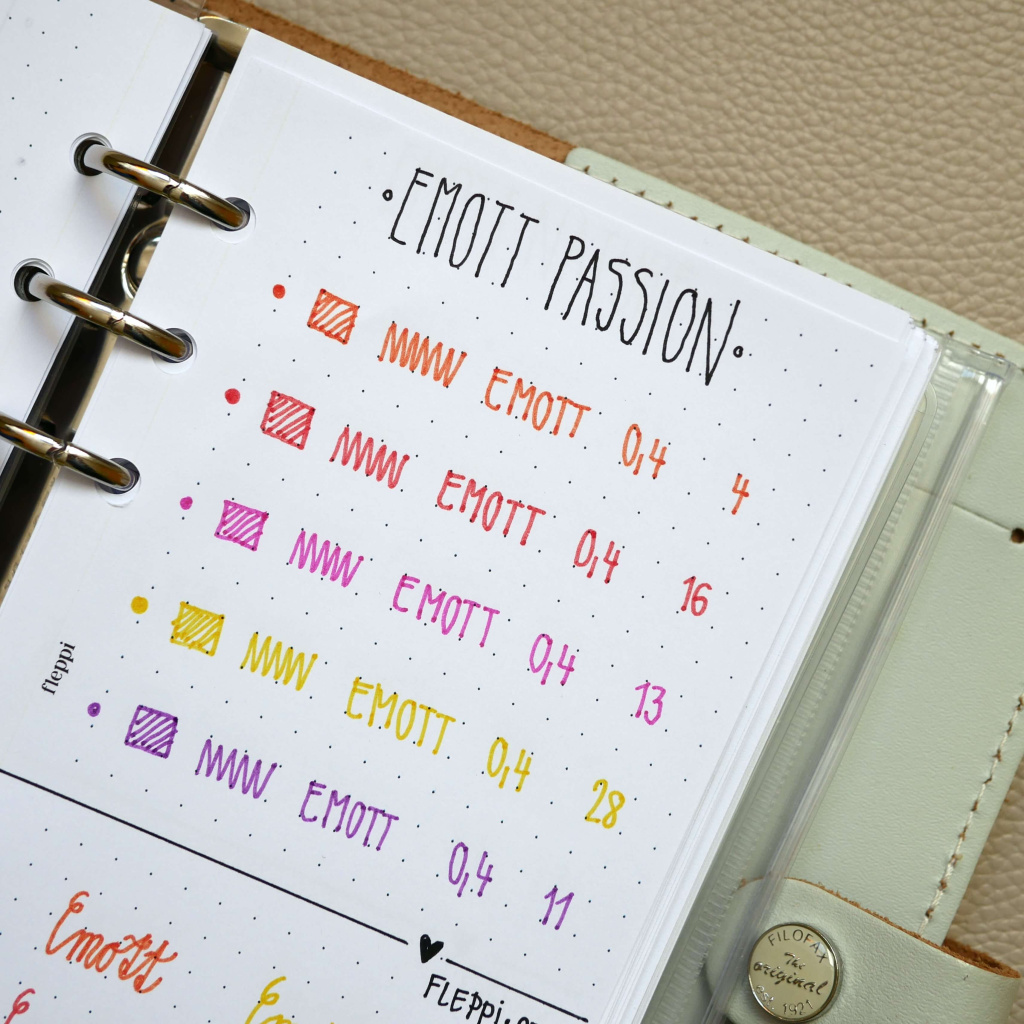 EMOTT PASSION
EMOTT 0,4 4
EMOTT 0,4 16
EMOTT 0,4 13
EMOTT 0,4 28
EMOTT 0,4 11
fleppi
Emott
FLEPPI.
FILOFAX
The original
EST. 1921